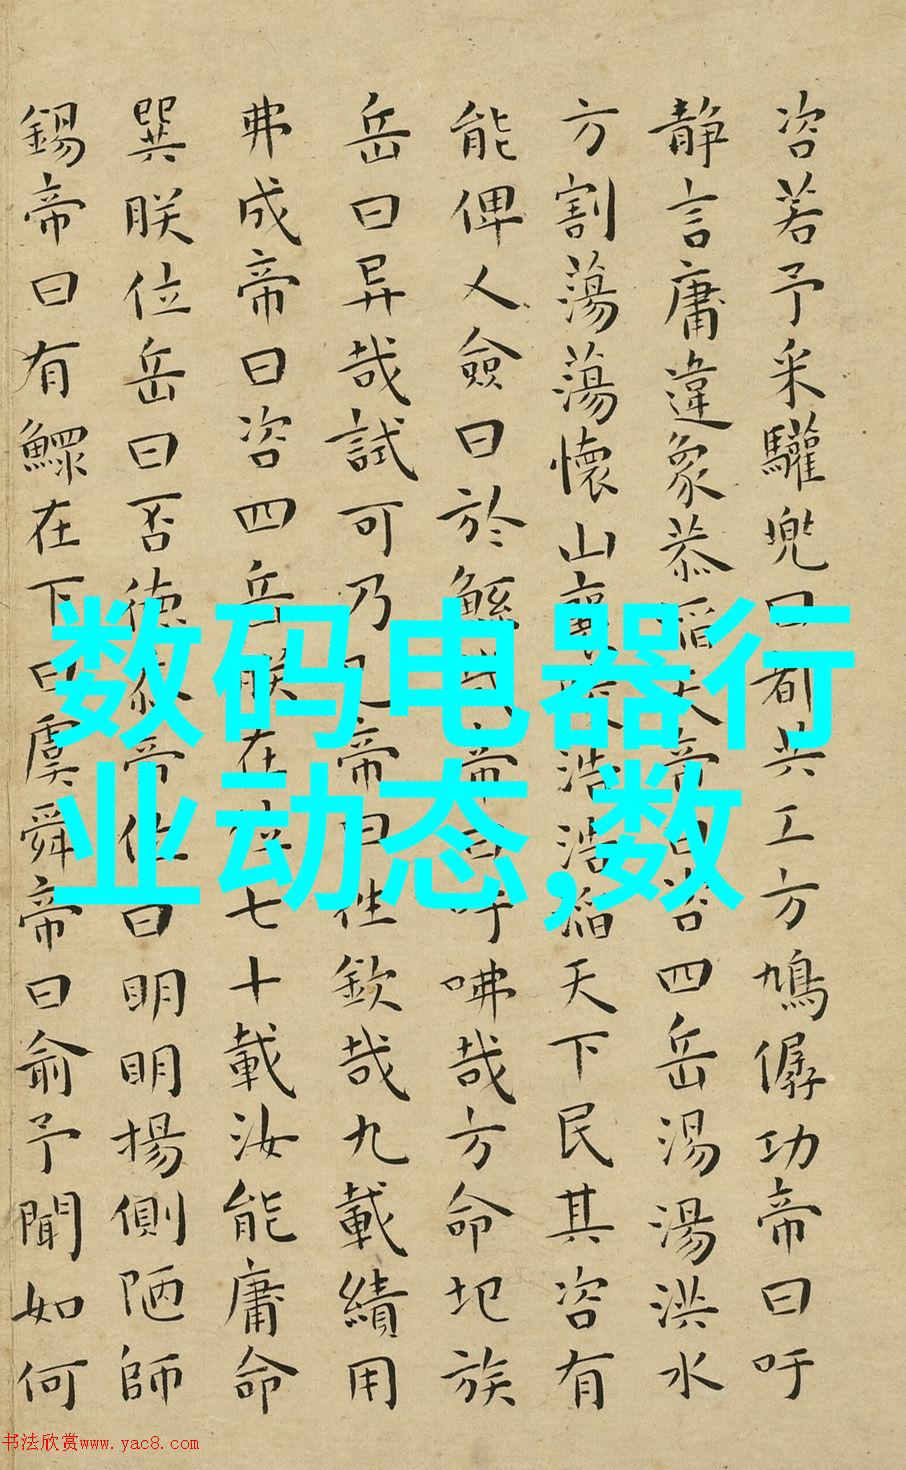 咨若予采驩兜曰都共工方鳩僝功帝曰吁
靜言庸違象恭滔天帝曰咨四岳湯湯洪水
方割蕩蕩懷山襄浩浩滔天下民其咨有
能俾人僉曰於鯀帝曰吁咈哉方命圯族
岳曰异哉試可乃帝曰往欽哉九載績用
弗成帝曰咨四岳朕在位七十載汝能庸命
巽朕位岳曰否德忝帝位曰明明揚側陋師
錫帝曰有鰥在下曰虞舜帝曰俞予聞如何
数码电器行
业动态,数
书法欣赏www.yac8.com